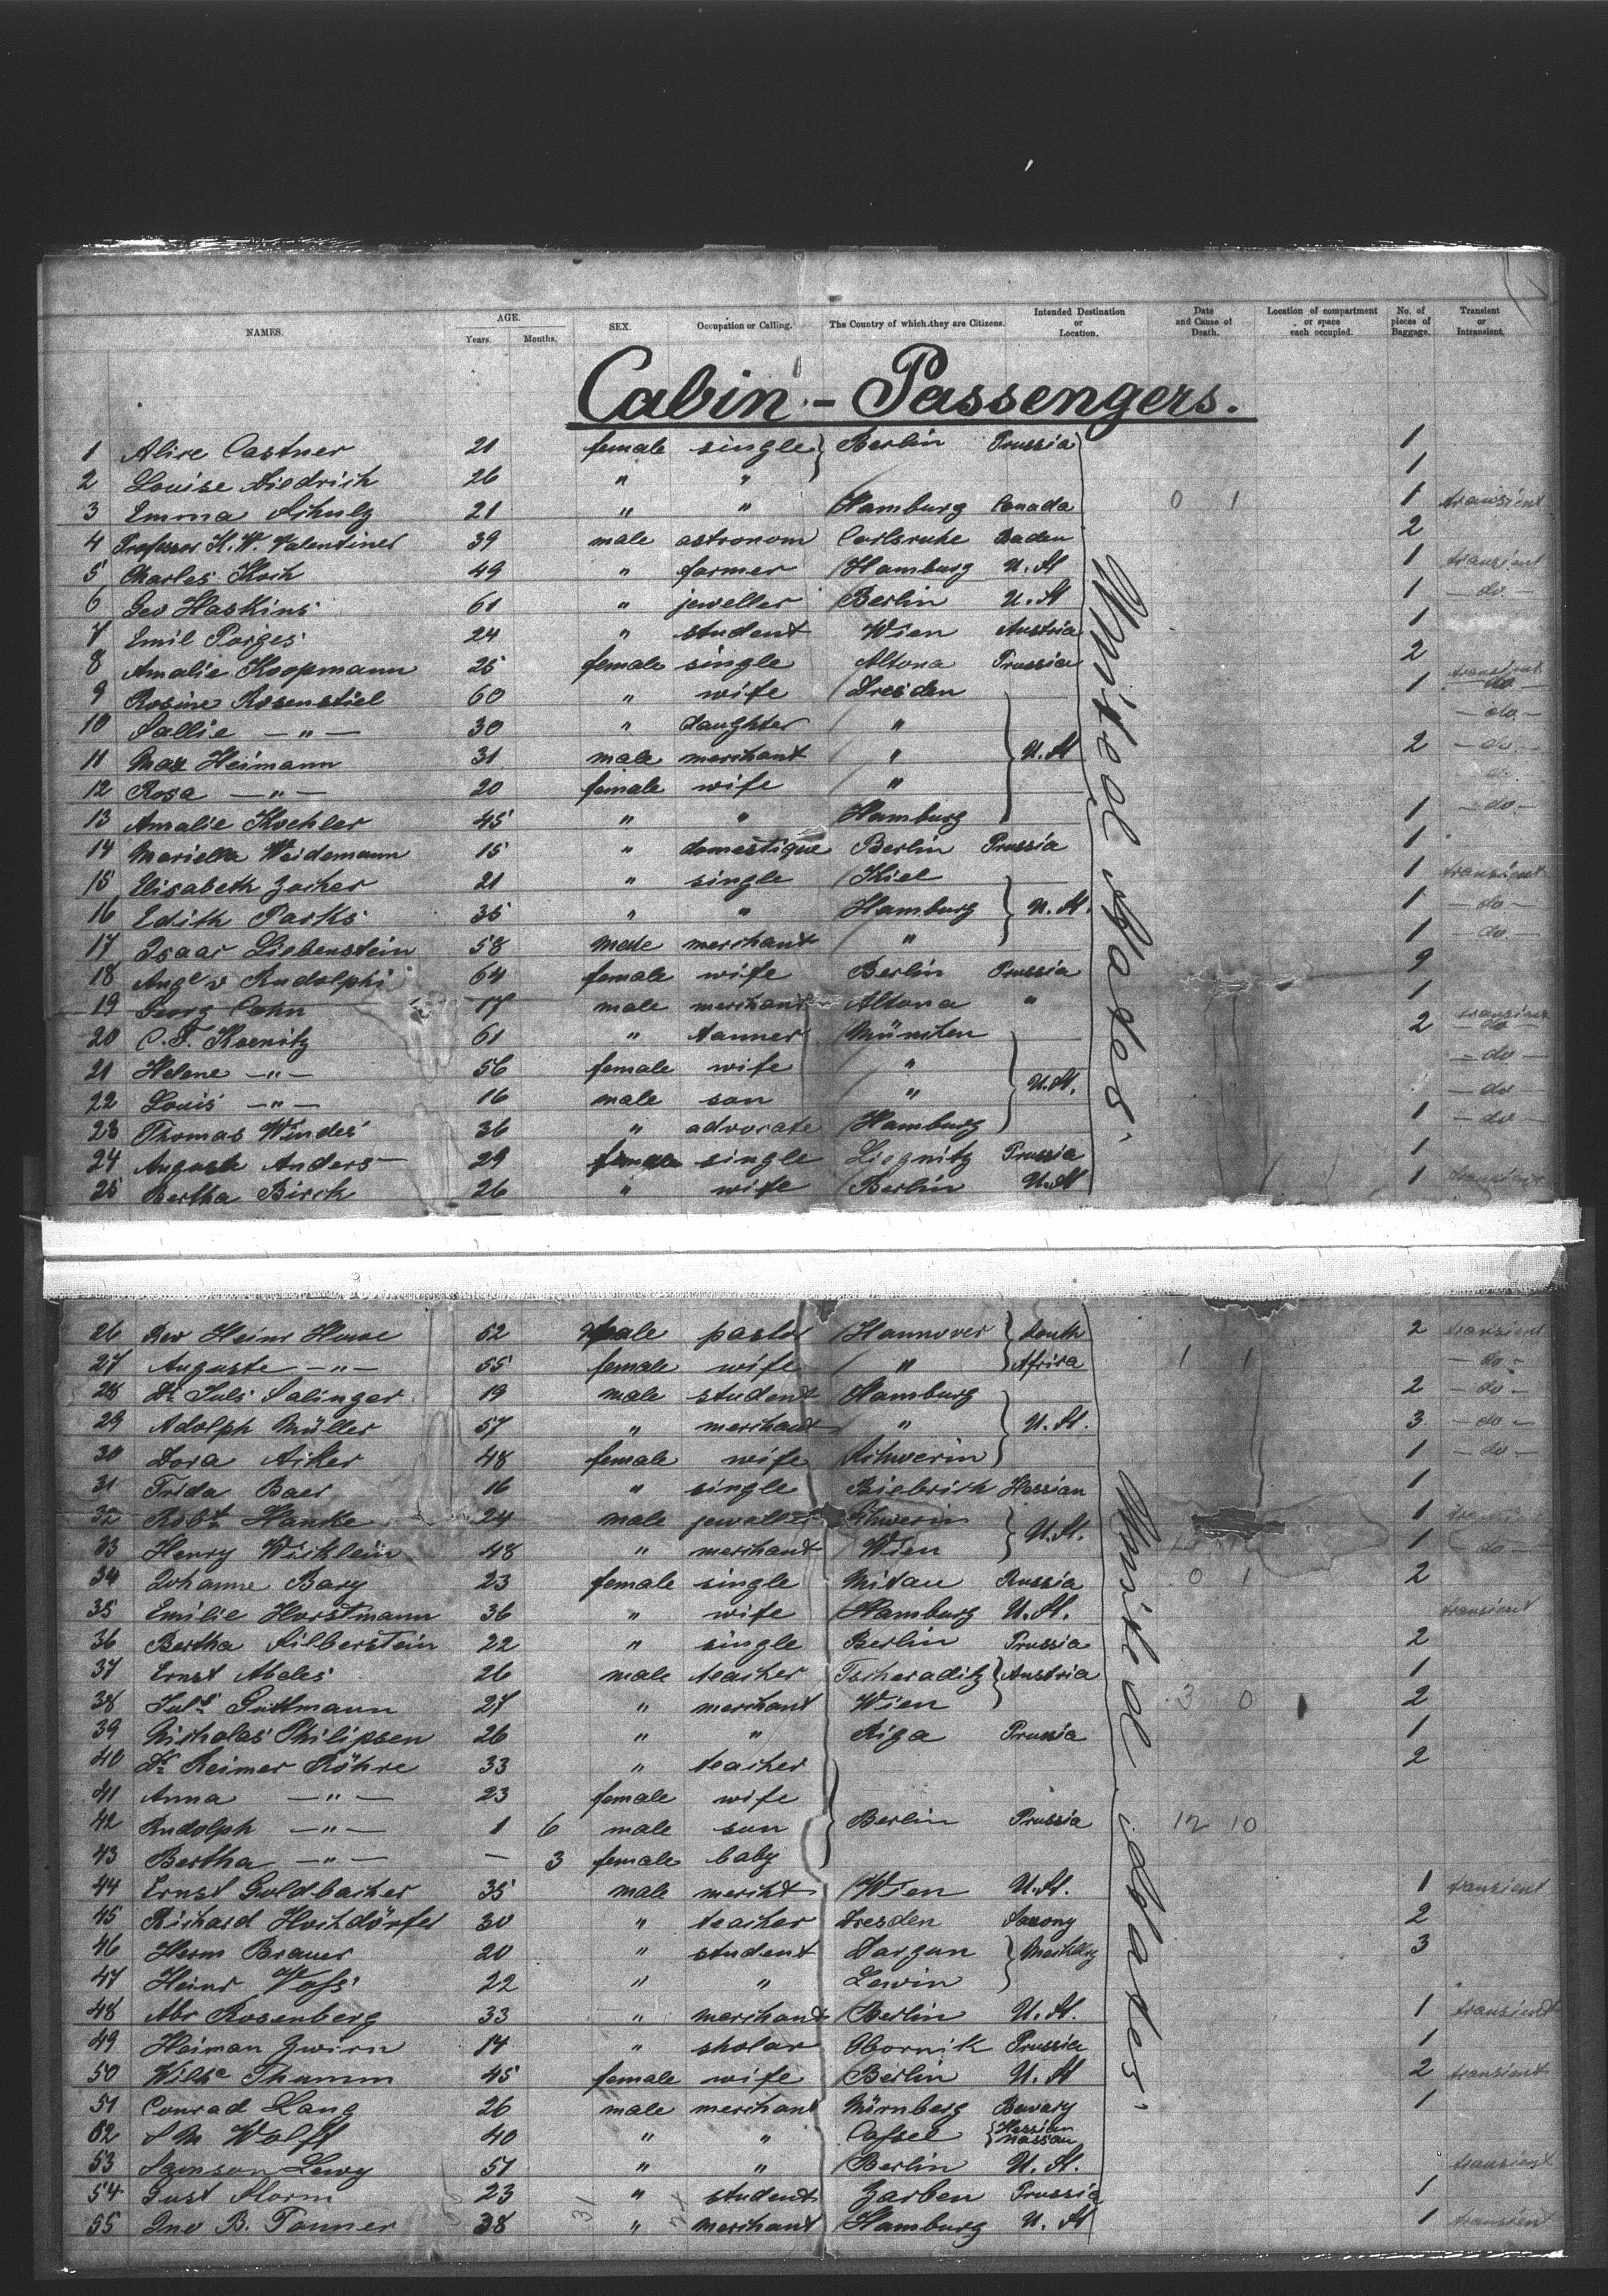 NAMES. AGE. Years. Months. SEX. Occupation or Calling. The Country of which they are Citizens. Intended Destination or Location. Date and Cause of Death. Location of compartment or space each occupied. No. of pieces of Baggage. Transient or Intransient.
Cabin - Passengers.
1 Alice Castner 21 female single } Berlin Prussia 1
2 Louise Diedrich 26 " " 1
3 Emma Schulz 21 " " Hamburg Canada 0 1 1 transient
4 Professor K. W. Valentiner 39 male astronom Carlsruhe Baden 2
5 Charles Koch 49 " farmer Hamburg U. St 1 transient
6 Geo Haskins 61 " jeweller Berlin U. St 1 - do. -
7 Emil Porges 24 " student Wien Austria 1
8 Amalie Koopmann 25 female single Altona Prussia 2
9 Rosine Rosenstiel 60 " wife Dresden 1 transient - do -
10 Sallie - " - 30 " daughter " - do. -
11 Max Heimann 31 male merchant " } U. St 2 - do. -
12 Rosa - " - 20 female wife " - d. -
13 Amalie Koehler 45 " " Hamburg 1 - do. -
14 Mariella Weidemann 15 " domestique Berlin Prussia 1
15 Elisabeth Zocher 21 " single Kiel 1 transient
16 Edith Parks 35 " " Hamburg } U. St. 1 - do -
17 Isaac Liebenstein 58 male merchant " 1 - do. -
18 Auge v Rudolphi 64 female wife Berlin Prussia 9
19 Georg Cohn 17 male merchant Altona " 1
20 C. F. Koenitz 61 " tanner München 2 transient - do -
21 Helene - " - 56 female wife " - do -
22 Louis - " - 16 male son " } U. St. - do
23 Thomas Windes 36 " advocate Hamburg 1 - do -
24 Auguste Anders 29 female single Liegnitz Prussia 1
25 Bertha Birck 26 " wife Berlin U. St 1 transient
United States.
26 Rev Heinr Howe 52 male pastor Hannover } South 2 transient
27 Auguste - " - 55 female wife " } Africa 1 1 - do -
28 Dr Juls Salinger 19 male student Hamburg 2 - do -
29 Adolph Müller 57 " merchant " } U. St. 3 - do -
30 Dora Aiker 48 female wife Schwerin 1 - do -
31 Frida Baer 16 " single Biebrich Hessian 1
32 Robt Hanke 24 male jeweller Schwerin 1
33 Henry Wicklein 48 " merchant Wien } U. St. 1 - do -
34 Johanne Bary 23 female single Mitau Russia 0 1 2
35 Emilie Horstmann 36 " wife Hamburg U. St. transient
36 Bertha Silberstein 22 " single Berlin Prussia 2
37 Ernst Abeles 26 male teacher Tscheraditz } Austria 1
38 Juls Guttmann 27 " merchant Wien 3 0 2
39 Nicholas Philipsen 26 " " Riga Prussia 1
40 Dr Reimer Röhre 33 " teacher 2
41 Anna - " - 23 female wife
42 Rudolph - " - 1 6 male son } Berlin Prussia 12 10
43 Bertha - " - - 3 female baby
44 Ernst Goldbacher 35 male mercht Wien U. St. 1 transient
45 Richard Hochdörfer 30 " teacher Dresden Saxony 2
46 Herm Brauer 20 " student Dargun } Mecklbg 3
47 Heinr Voss 22 " " Lewin
48 Abr Rosenberg 33 " merchant Berlin U. St. 1 transient
49 Heiman Zwirn 14 " sholar Obornik Prussia 1
50 Wilhe Thumm 45 female wife Berlin U. St 2 transient
51 Conrad Lang 26 male merchant Nürnberg Bavary 1
52 S M Wolff 40 " " Cassel { Hessian Nassau
53 Samson Lewy 51 " " Berlin U. St. transient
54 Gust Storm 23 " student Zarben Prussia 1
55 Jno B. Tanner 38 " merchant Hamburg U. St 1 transient
United States.
31